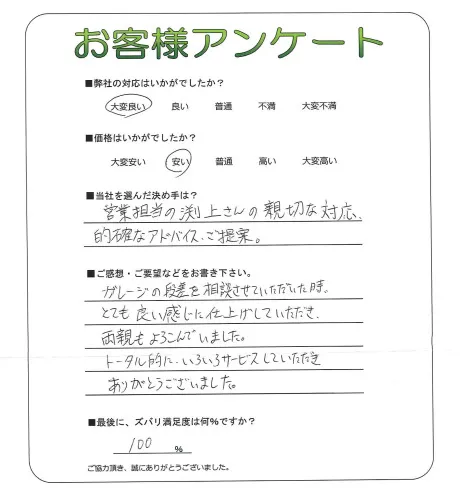 お客様アンケート
■弊社の対応はいかがでしたか？
大変良い 良い 普通 不満 大変不満
■価格はいかがでしたか？
大変安い 安い 普通 高い 大変高い
■当社を選んだ決め手は？
営業担当の渕上さんの親切な対応、
的確なアドバイス、ご提案。
■ご感想・ご要望などをお書き下さい。
ガレージの段差を相談させていただいた時、
とても良い感じに仕上げしていただき、
両親もよろこんでいました。
トータル的に、いろいろサービスしていただき
ありがとうございました。
■最後に、ズバリ満足度は何%ですか？
100 %
ご協力頂き、誠にありがとうございました。